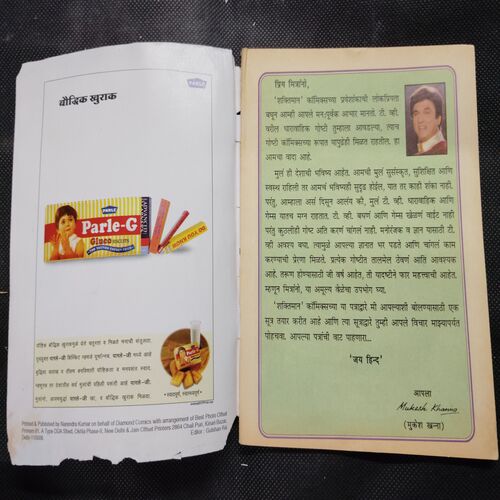 PARLE
बौद्धिक खुराक
PARLE
Parle-G
Gluco BISCUITS
स्वादपूर्ण, स्वास्थ्यपूर्ण
Printed & Published by Narendra Kumar on behalf of Diamond Comics with arrangement of Best Photo Offset
Printers-81, A Type DDA Shed, Okhla Phase-II, New Delhi & Jain Offset Printers 2864 Chail Puri, Kinari Bazar,
Delhi-110006.
Editor : Gulshan Rai
प्रिय मित्रांनो,
'शक्तिमान' कॉमिक्सच्या प्रवेशांकाची लोकप्रियता
बघून आम्ही आपले मन:पूर्वक आभार मानतो. टी. व्ही.
वरील धारावाहिक गोष्टी तुम्हाला आवडल्या, त्याच
गोष्टी कॉमिक्सच्या रूपात यापुढेही मिळत राहतील. हा
आमचा वादा आहे.
मुलं ही देशाची भविष्य आहेत. आमची मुलं सुसंस्कृत, सुशिक्षित आणि
स्वस्थ राहिली तर आमचं भविष्यही सुदृढ होईल, यात तर काही शंका नाही.
परंतु, आम्हाला असं दिसून आलंय की, मुलं टी. व्ही. धारावाहिक आणि
गेम्स यातच मग्न राहतात. टी. व्ही. बघणं आणि गेम्स खेळणं वाईट नाही
परंतु कुठलीही गोष्ट अति करणं चांगलं नाही. मनोरंजक व ज्ञान यासाठी टी.
व्ही अवश्य बघा. त्यामुळे आपल्या ज्ञानात भर पडते आणि चांगलं काम
करण्याची प्रेरणा मिळते. प्रत्येक गोष्टीत तालमेल ठेवणं अति आवश्यक
आहे. तरूण होण्यासाठी जी वर्ष आहेत, ती यादृष्टीने फार महत्त्वाची आहेत.
म्हणून मित्रांनो, या अमूल्य वेळेचा उपभोग घ्या.
'शक्तिमान' कॉमिक्सच्या या पत्राद्वारे मी आपल्याशी बोलण्यासाठी एक
सूत्र तयार करीत आहे आणि त्या सूत्राद्वारे तुम्ही आपले विचार माझ्यापर्यंत
पोहचवा. आपल्या पत्रांची वाट पाहणारा...
'जय हिन्द'
आपला
Mukesh Khanna
(मुकेश खन्ना)